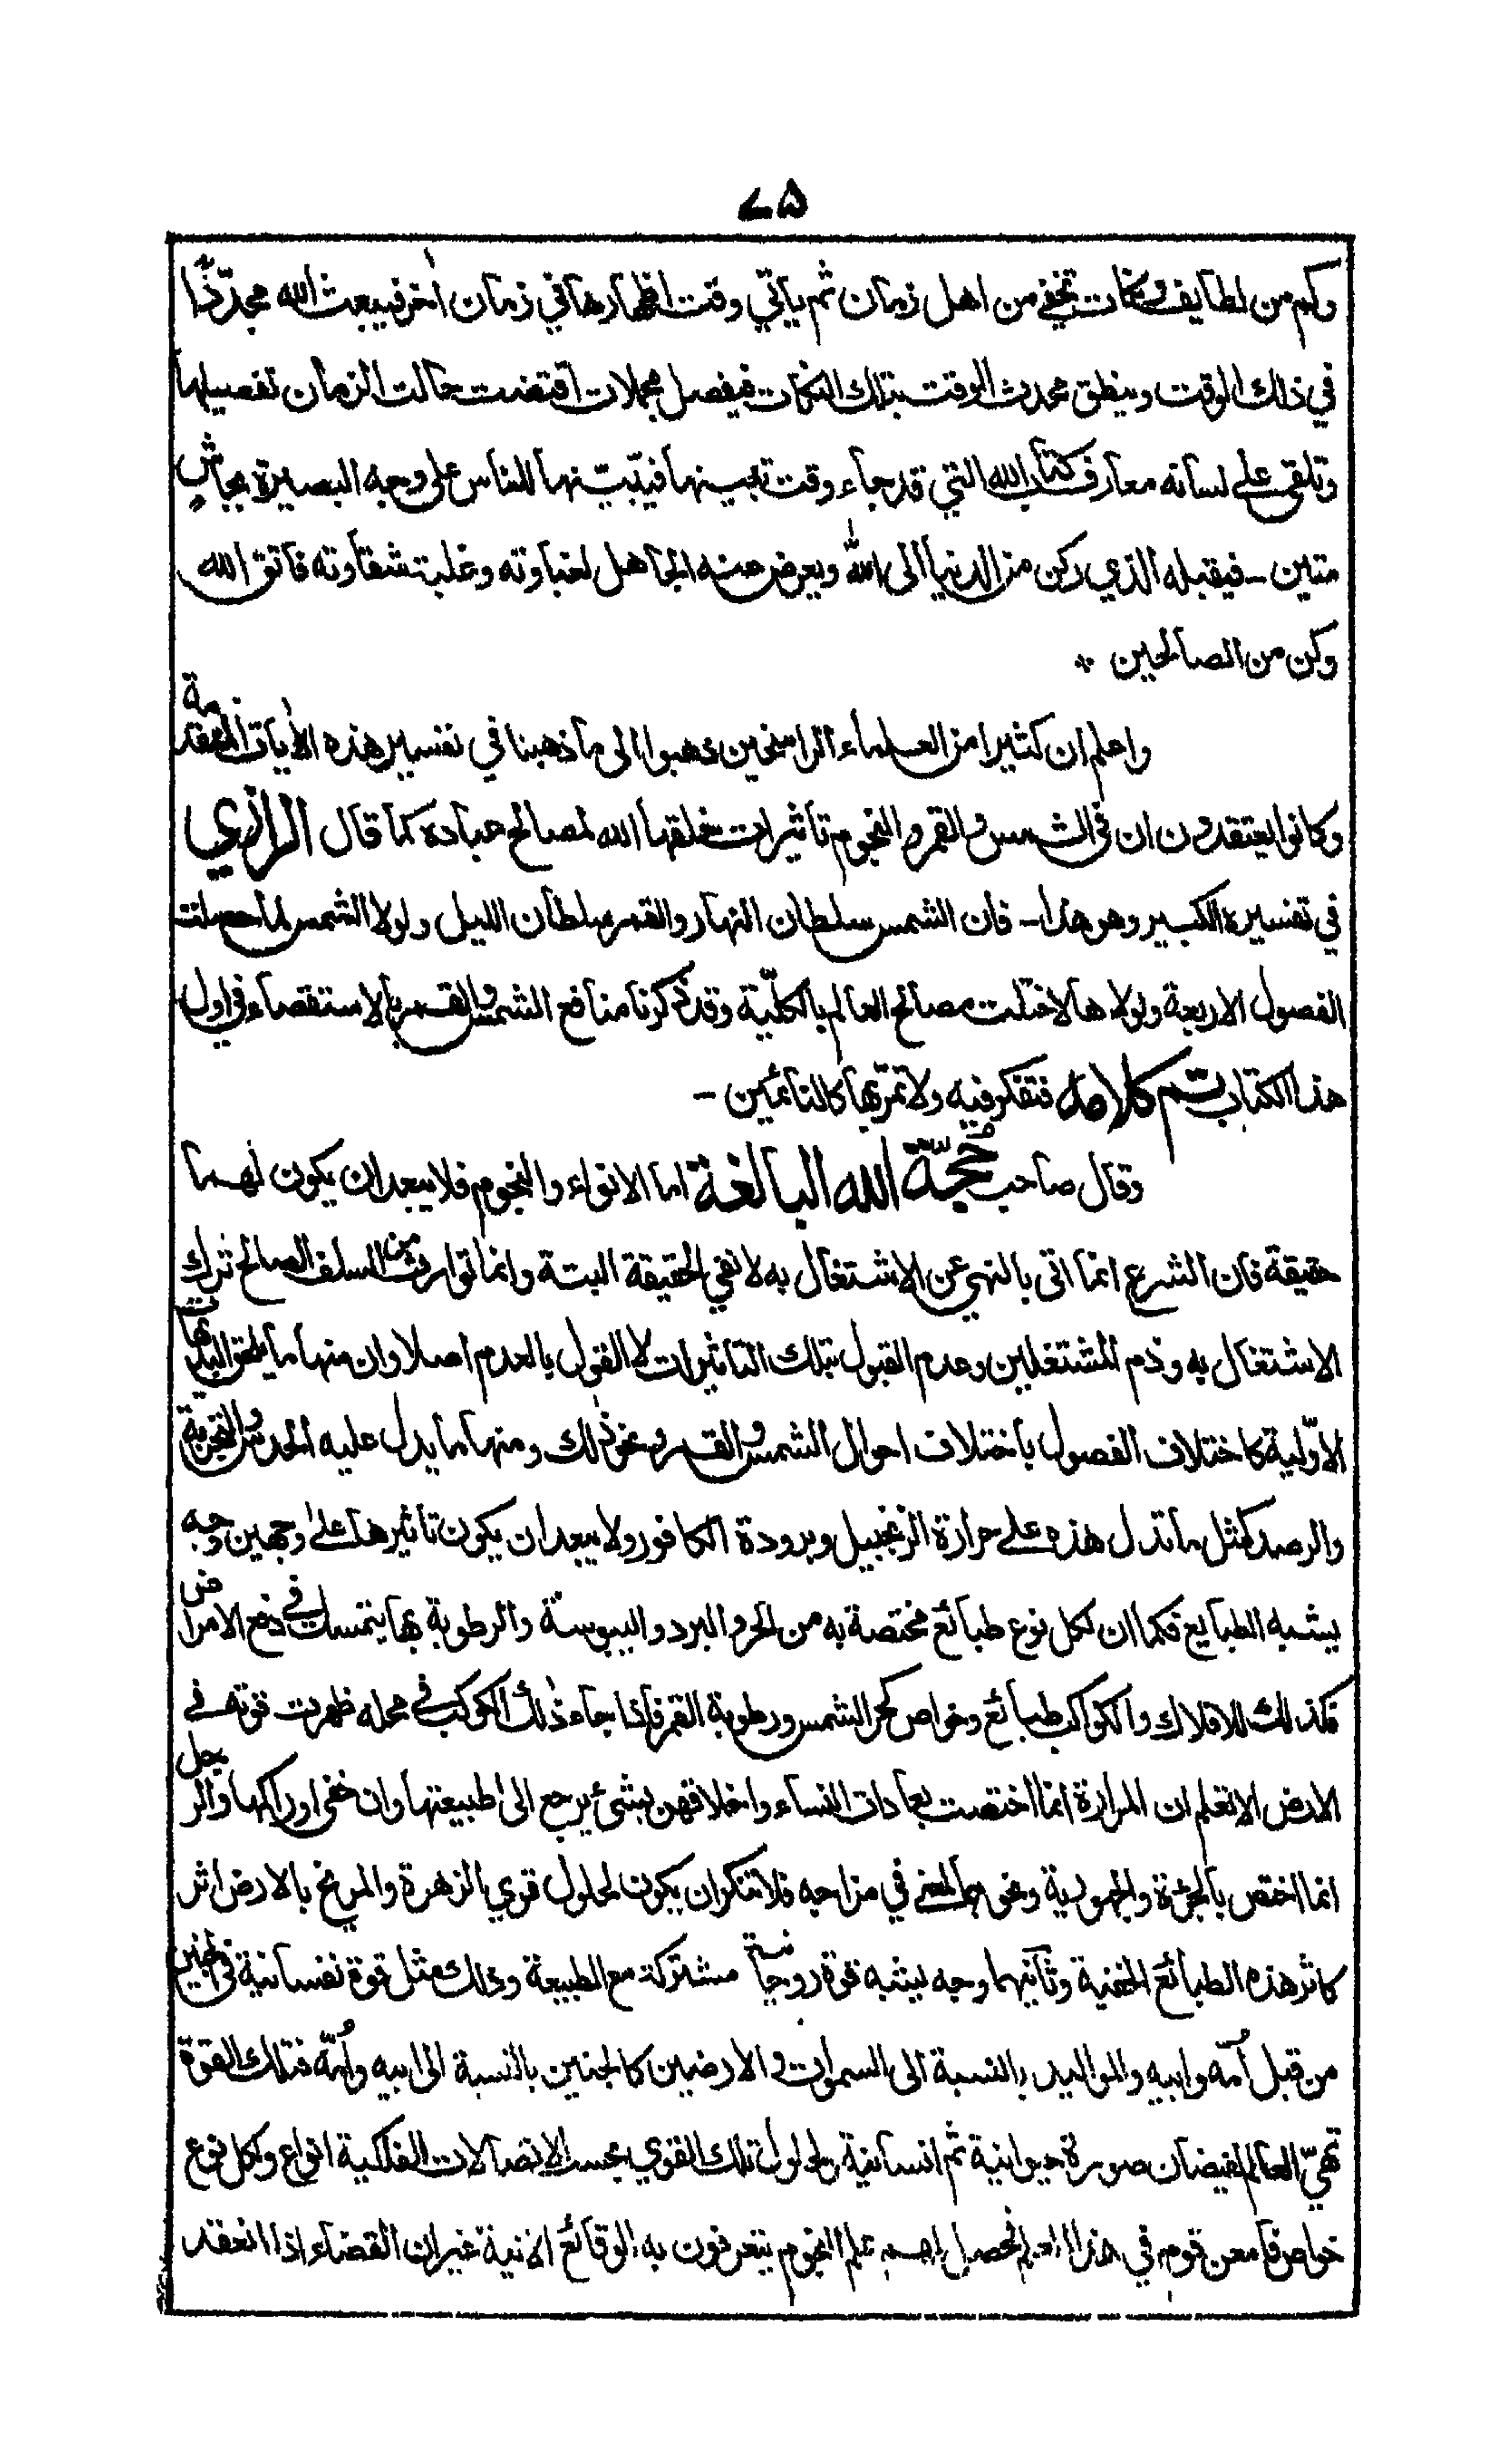 ۷۵
وكم من لطايف ونكات تخفى من اهل زمان ثم ياتي وقت اظهارها في زمان اٰخر فيبعث الله مجدّدًا
في ذلك الوقت وينطق محدث الوقت بتلك النكات فيفصل مجملات اقتضت حالت الزمان تفصيلها
وتلقى على لسانه معارف كتاب الله التي قد جاء وقت تبيينها فيبيّنها للناس على وجه البصيرة بجاشٍ
متين - فيقبله الذي ركن من الدنيا الى الله ويعرض عنه الجاهل لغباوته وغلبة شقاوته فاتق الله
وكن من الصالحين ٭
واعلم ان كثيرا من العلماء الراسخين ذهبوا الى ما ذهبنا في تفسير هذه الاٰيات المتقدمة
وكانوا يعتقدون ان في الشمس والقمر والنجوم تاثيرات خلقها الله لمصالح عباده كما قال الرازي
في تفسيره الكبير وهو هذا - فان الشمس سلطان النهار والقمر سلطان الليل ولولا الشمس لما حصلت
الفصول الاربعة ولولاها لاختلت مصالح العالم بالكلّية وقد ذكرنا منافع الشمس والقمر بالاستقصاء في اول
هذا الكتاب تم كلامه فتفكر فيه ولا تمرّ بها كالنائمين -
وقال صاحب حُجّة الله البالغة اما الانواء والنجوم فلا يبعد ان يكون لهما
حقيقة فان الشرع انما اتى بالنهي عن الاشتغال به لا نفي الحقيقة البتة وانما توارث من السلف الصالح ترك
الاشتغال به وذم المشتغلين وعدم القبول بتلك التاثيرات لا القول بالعدم اصلا وان منها ما يلحق البديهات
الاوّلية كاختلاف الفصول باختلاف احوال الشمس والقمر ونحو ذلك ومنها ما يدل عليه الحدس والتجربة
والرصد كمثل ما تدل هذه على حرارة الزنجبيل وبرودة الكافور ولا يبعد ان يكون تاثيرها على وجهين وجه
يشبه الطبايع فكما ان لكل نوع طبائع مختصة به من الحر والبرد واليبوسة والرطوبة بها يتمسك في دفع الامراض
فكذلك للافلاك والكواكب طبائع وخواص كحر الشمس ورطوبة القمر فاذا جاء ذٰلك الكوكب في محله ظهرت قوته في
الارض الا تعلم ان المراءة انما اختصت بعادات النساء واخلاقهن بشئ يرجع الى طبيعتها وان خفى ادراكها والرجل
انما اختص بالجرءة والجهورية ونحوهما لمعنى في مزاجه فلا تنكر ان يكون لحلول قوي الزهرة والمريخ بالارض اثر
كاثر هذه الطبائع الخفية وثانيهما وجه يشبه قوة روحانية مشتركة مع الطبيعة وذلك مثل قوة نفسانية في الجنين
من قبل اُمّه وابيه والمواليد بالنسبة الى السموات والارضين كالجنين بالنسبة الى ابيه واُمّه فتلك القوة
تهيّ العالم لفيضان صورة حيوانية ثم انسانية ولحلول تلك القوي بحسب الاتصالات الفلكية انواع ولكل نوع
خواص فامعن قوم في هذا العلم فحصل لهم علم النجوم يتعرفون به الوقائع الاٰتية غير ان القضاء اذا انعقد